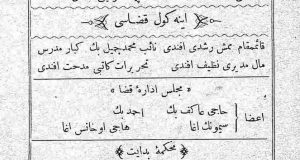 اینه كول قضاسی
قائمقام ممش رشدی افندی نائب محمد جمیل بك كبار مدرس
مال مدیری نظیف افندی تحریرات كاتبی مدحت افندی
« مجلس ادارهٔ قضا »
اعضا حاجی عاكف بك احمد بك
سیمونك اغا هاجی اوخانس اغا
﴿ محكمهٔ بدایت ﴾